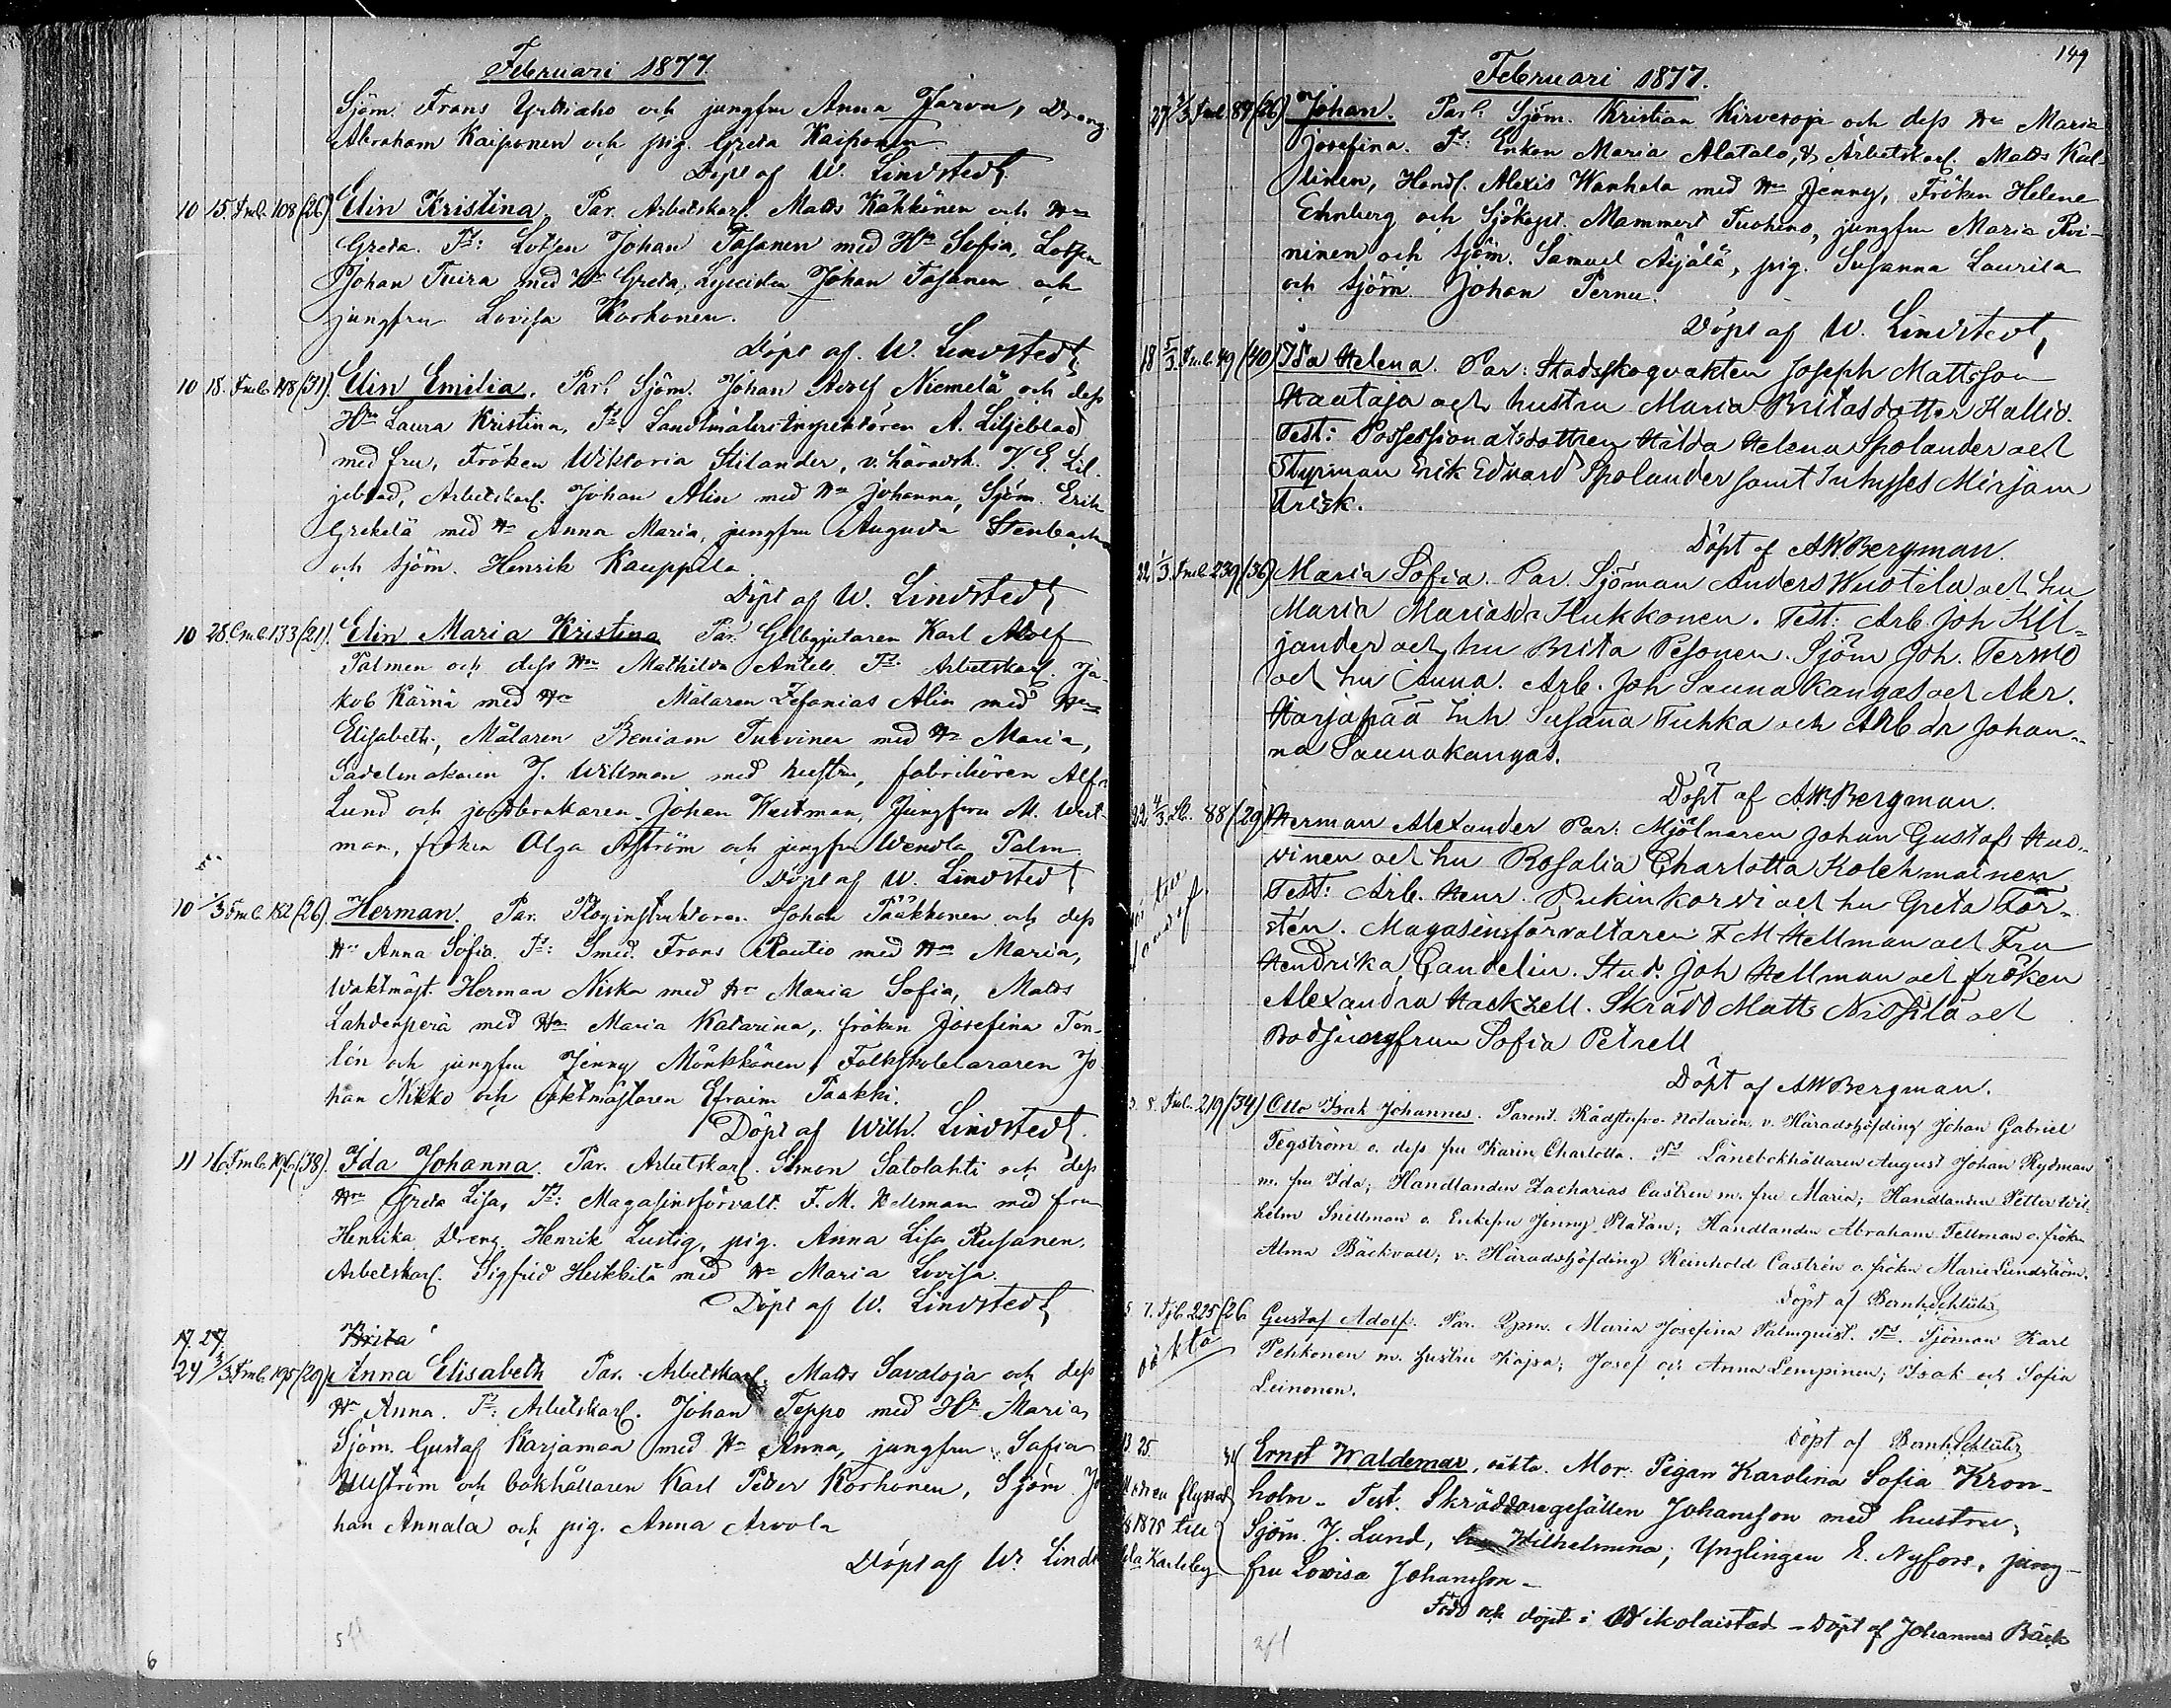 Februari 1877.
Sjöm. Frans Yrttiaho och jungfru Anna Jarva, Dreng
Abraham Kaiponen och pig. Greta Kaiponen
Döpt af W. Lindstedt
10 15. Fml. 108 (26). Elin Kristina, Par. Arbetskarl. Matts Käkkönen och Hu
Greta. Ts: Lotsen Johan Tasanen med Hu Sofia, Lotsen
Johan Tuira med Hu Greta, Lyceisten Johan Tasanen och
jungfru Lovisa Korhonen.
Döpt af. W. Lindstedt
10 18. Fmb. 148 (31). Elin Emilia. Par. Sjöm. Johan Adolf Niemelä och dess
Hu Laura Kristina, Ts Landtmäteriinspektören A. Liljeblad
med fru, Fröken Wiktoria Stilander, v. häradsh. V. E. Lil
jeblad, Arbetskarl. Johan Alin med Hu Johanna, Sjöm. Erik
Grekelä med Hu Anna Maria, jungfru Augusta Stenbäck
och sjöm. Henrik Kauppila
Döpt af W. Lindstedt
10 28. Fmb. 133 (21). Elin Maria Kristina Par. Gelbgjutaren Karl Adolf
Palmen och dess Hu Mathilda Antell. Ts. Arbetskarl. Ja-
kob Kärnä med Hu Målaren Zefanias Alin med Hu
Elisabeth, Målaren Beniam Turvinen med Hu Maria,
Sadelmakaren J. Willman med hustru, fabrikören Alfr.
Lund och jordbrukaren Johan Westman, Jungfru M. West-
man, fröken Olga Aström och jungfru Wendla Palm
Döpt af W. Lindstedt
10 1/3 Fmb. 182 (26). Herman. Par. Ploginstruktoren Johan Pääkkönen och dess
Hu Anna Sofia. Ts: Smed. Frans Rautio med Hu Maria,
Waktmäst. Herman Niska med Hu Maria Sofia, Matts
Lahdenperä med Hu Maria Katarina, fröken Josefina Ton-
lén och jungfru Jenny Mönkkönen, Folkskolelararen Jo
han Nikko och vaktmästaren Efraim Paakki.
Döpt af Wilh. Lindstedt.
11 16. Fmb. 196 (38). Ida Johanna. Par. Arbetskarl. Simon Satolahti och dess
Hu Greta Lisa, Ts: Magasinsförvalt. F. M. Hellman med fru
Henrika Dreng Henrik Lustig, pig. Anna Lisa Rusanen,
Arbetskarl. Sigfrid Heikkilä med Hu Maria Lovisa.
Döpt af W. Lindstedt
17. 27. Brita
24 3/3 Fmb. 195 (29) Anna Elisabeth Par. Arbetskarl. Matts Savaloja och dess
Hu Anna. Ts: Arbetskarl. Johan Teppo med Hu Maria,
Sjöm. Gustaf Karjamaa med Hu Anna, jungfru Sofia
Ulström och bokhållaren Karl Peter Korhonen, Sjöm. Jo
han Annala och pig. Anna Arvola
Döpt af W. Lindst
6
149
Februari 1877.
27 3/3 Fml. 87 (26) Johan. Par. Sjöm. Kristian Kirvesoja och dess Hu Maria
Josefina. Ts: Enkan Maria Alatalo, & Arbetskarl. Matts Kal-
linen, Handl. Alexis Wanhala med Hu Jenny, Fröken Helene
Ehnberg och Sjökapt. Mammert Tuohino, jungfru Maria Pui-
ninen och sjöm. Samuel Äijälä, pig. Susanna Laurila
och sjöm Johan Pernu.
Döpt af W. Lindstedt,
18 5/3 Fmb. 49 (40) Ida Helena. Par: Stadsskogvakten Joseph Mattsson
Hautaja och hustru Maria Britasdotter Kallio.
Test: Possessionatsdottren Hilda Helena Spolander och
Styrman Erik Edvard Spolander samt Inhysses Mirjam
Frisk.
Döpt af AWBergman.
22 1/3 Fmb. 239 (36) Maria Sofia. Par. Sjöman Anders Wuotila och hu
Maria Mariasdr Hukkonen. Test: Arb. Joh Kil-
jander och hu Brita Pesonen. Sjöm Joh. Termo
och hu Anna. Arb. Joh Saunakangas och Abr.
Harjapää Inh Susana Tuhka och Arb dr Johan-
na Saunakangas.
Döpt af A.W.Bergman.
22 4/3. Lb. 88 (29) Herman Alexander Par: Mjölnaren Johan Gustafs Huo-
vinen och hu Rosalia Charlotta Kolehmainen
Test: Arb. Henr. Pukinkorvi och hu Greta For-
stén. Magasinsförvaltaren F M Hellman och Fru
Hendrika Candelin. Stud. Joh Hellman och fröken
Alexandra Hackzell. Skrädd Matts Nissilä och
Bodjungfrun Sofia Petrell
Döpt af AWBergman.
8. Fmb. 219 (34) Otto Isak Johannes. Parent. Rådstufvo-Notarien v. Häradshöfding Johan Gabriel
Tegström o. dess fru Karin Charlotta. Ts Länebokhållaren August Johan Rydman
m. fru Ida; Handlanden Zacharias Castrén m. fru Maria; Handlanden Petter Wil-
helm Snellman o. Enkefru Jenny Platan; Handlanden Abraham Fellman o. fröken
Alma Bäckvall; v. Häradshöfding Reinhold Castrén o. fröken Marie Lundström.
Döpt af Bernh. Schlüter
5 7. Fjb. 225 (26 Gustaf Adolf. Par. Qpsn. Maria Josefina Palmquist. Ts. Sjöman Karl
oäkta
Pehkonen m. hustru Kajsa; Josef och Anna Lempinen; Isak och Sofia
Leinonen.
Döpt af Bernh. Schlüter
13. 25. Ernst Waldemar, oäkta. Mor: Pigan Karolina Sofia Kron-
Modren flyttad
holm - Test. Skräddaregesällen Johansson med hustru,
1875 till
Sjöm. J. Lund, Wilhelmina; Ynglingen E. Nyfors, jung-
Karleby
fru Lovisa Johansson -
Född och döpt i Nikolaistad - Döpt af Johannes Bäck